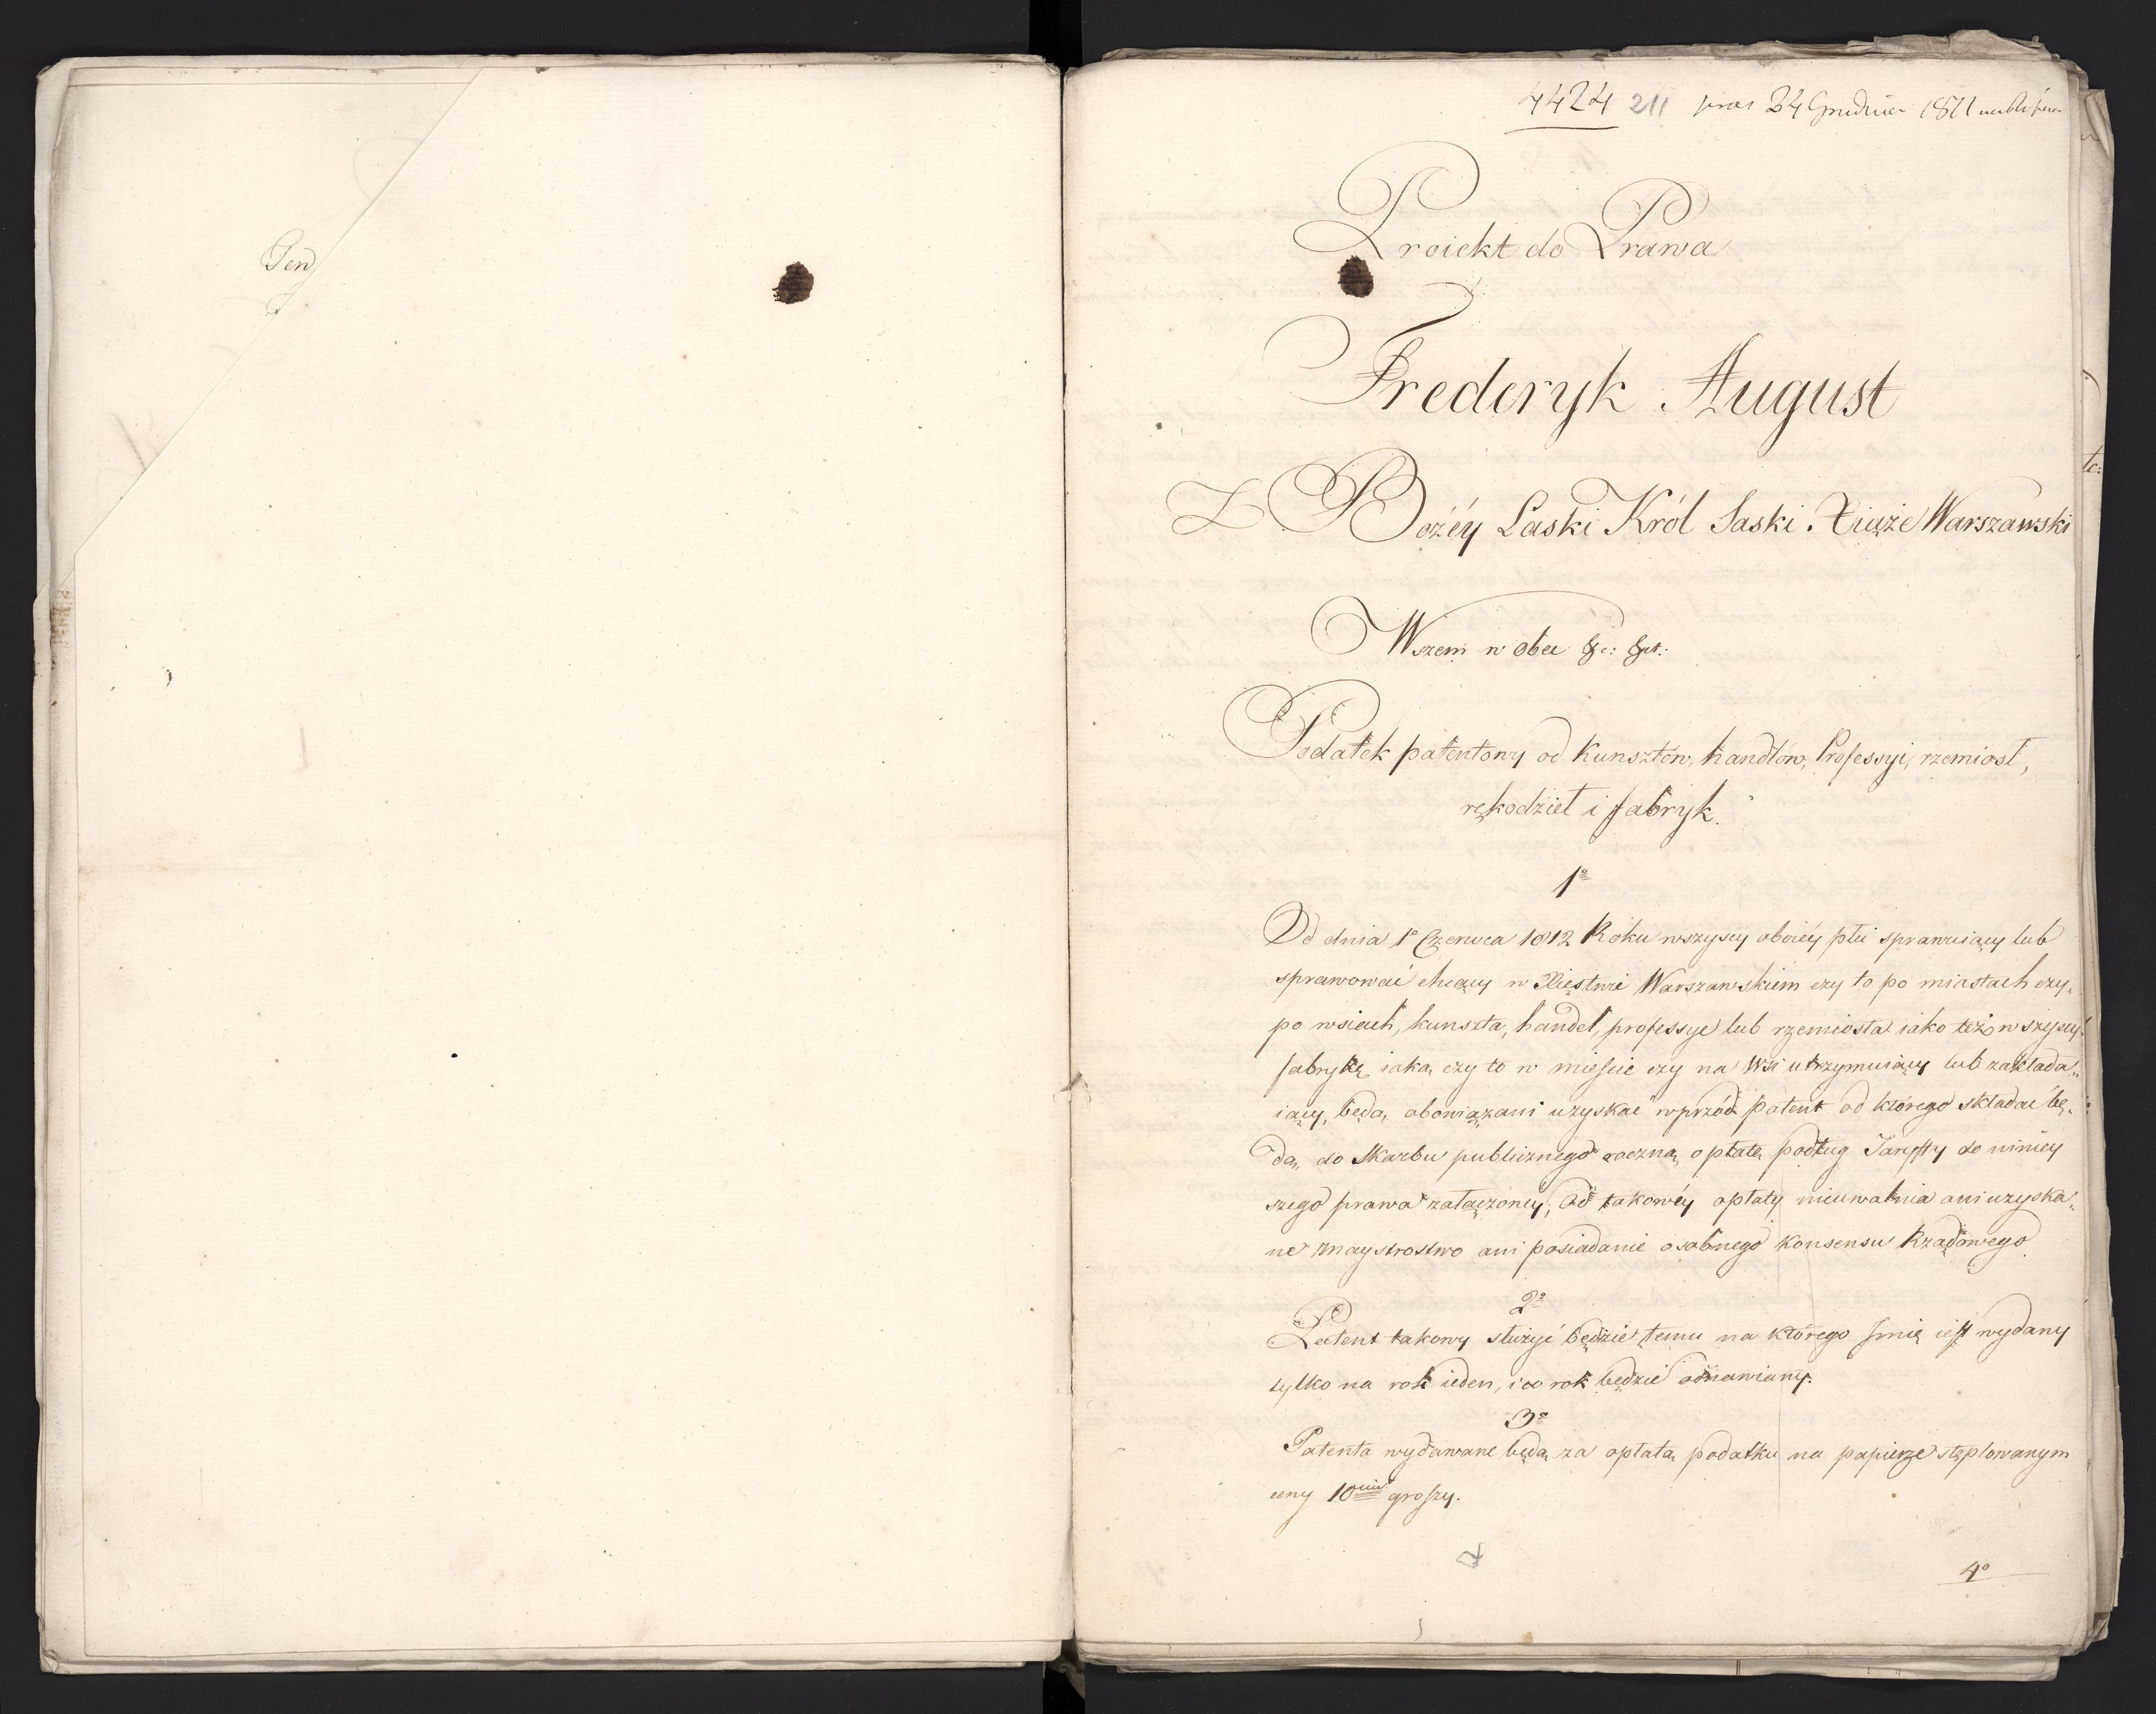 Jen
4424 211 pras 24 Grudnia 1811
Proiekt do Prawa
Frederyk August
Z Bożéy Laski Król Saski Xiąże Warszawski
Wszem w obec &c: &ct:
Podatek patentowy od Kunsztów, handlów, Professyi, rzemiosł,
rękodzieł i fabryk.
1º
Od dnia 1º Czerwca 1812 Roku wszyscy oboiéy płci sprawuiący lub
sprawować chcący w Xięstwie Warszawskiem czy to po miastach czy„
po wsiach, kunszta, handel, professye lub rzemiosła iako też wszyscy
fabrykę iaką czy to w mieście czy na Wsi utrzymuiący lub zakłada„
iący, będą obowiązani uzyskać wprzód patent od którego składać bę„
dą do Skarbu publicznego roczną opłatę podług Taryffy do niniey
szego prawa załączoney; Od takowéy opłaty nieuwalnia ani uzyska„
ne maystrostwo ani posiadanie osobnego konsensu Rządowego
2º
Patent takowy służyć będzie temu na którego Jmię iest wydany
tylko na rok ieden, i co rok będzie odnawiany.
3º
Patenta wydawane będą za opłatą podatku na papierze stęplowanym
ceny 10ciu groszy.
4º